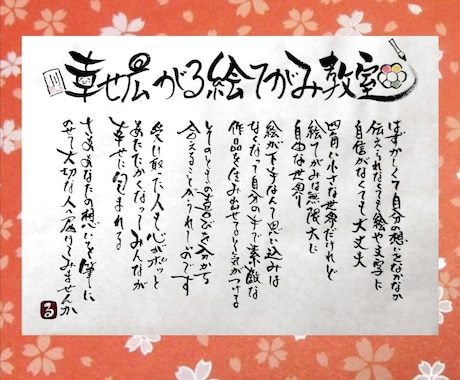 幸せ広がる絵てがみ教室
はずかしくて自分の想いをなかなか
伝えられなくても絵や文字に
自信がなくても大丈夫
四角い小さな世界だけれど
絵てがみは無限大に
自由な世界
絵が下手なんて思い込みは
なくなって自分の手で素敵な
作品を生み出せてると気がつける
そのときの喜びを分かち
合えることがうれしいのです
受け取った人も心がポッと
あたたかくなってみんなが
幸せに包まれる
さあ あなたの想いを筆に
のせて大切な人へ届けてみませんか
る